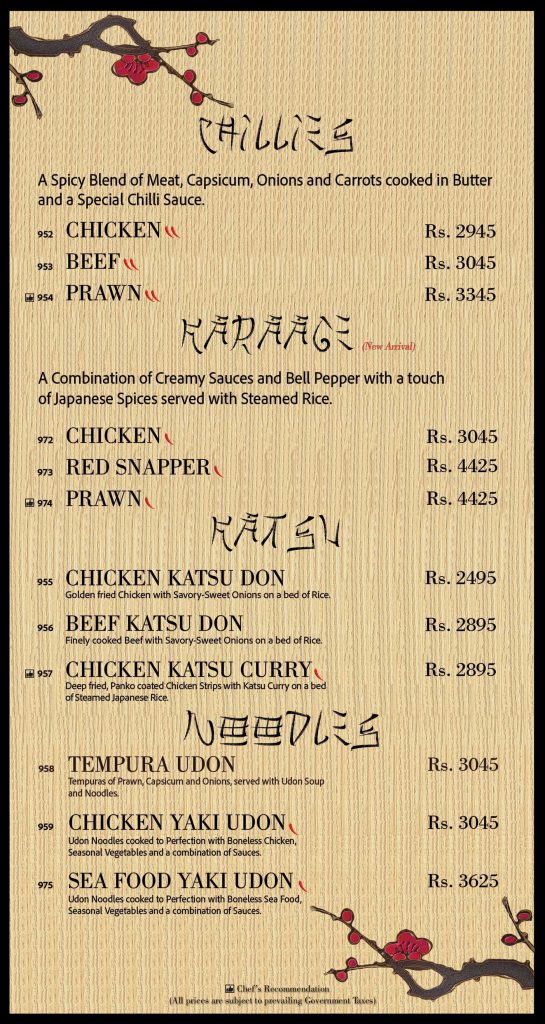 CHILLIES
A Spicy Blend of Meat, Capsicum, Onions and Carrots cooked in Butter
and a Special Chilli Sauce.
952 CHICKEN Rs. 2945
953 BEEF Rs. 3045
954 PRAWN Rs. 3345
KARAAGE (New Arrival)
A Combination of Creamy Sauces and Bell Pepper with a touch
of Japanese Spices served with Steamed Rice.
972 CHICKEN Rs. 3045
973 RED SNAPPER Rs. 4425
974 PRAWN Rs. 4425
KATSU
955 CHICKEN KATSU DON Rs. 2495
Golden fried Chicken with Savory-Sweet Onions on a bed of Rice.
956 BEEF KATSU DON Rs. 2895
Finely cooked Beef with Savory-Sweet Onions on a bed of Rice.
957 CHICKEN KATSU CURRY Rs. 2895
Deep fried, Panko coated Chicken Strips with Katsu Curry on a bed
of Steamed Japanese Rice.
NOODLES
958 TEMPURA UDON Rs. 3045
Tempuras of Prawn, Capsicum and Onions, served with Udon Soup
and Noodles.
959 CHICKEN YAKI UDON Rs. 3045
Udon Noodles cooked to Perfection with Boneless Chicken,
Seasonal Vegetables and a combination of Sauces.
975 SEA FOOD YAKI UDON Rs. 3625
Udon Noodles cooked to Perfection with Boneless Sea Food,
Seasonal Vegetables and a combination of Sauces.
Chef's Recommendation
(All prices are subject to prevailing Government Taxes)